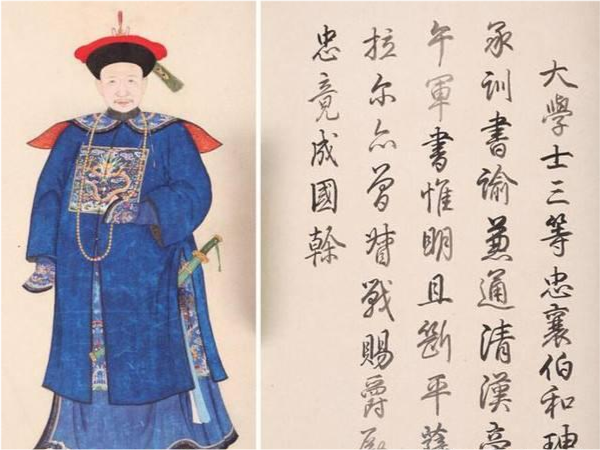 大學士三等忠襄伯和珅
承訓書諭兼通清漢旁
午軍書惟明且斷平薩
拉尔亦曾督戰賜爵
忠竟成國幹